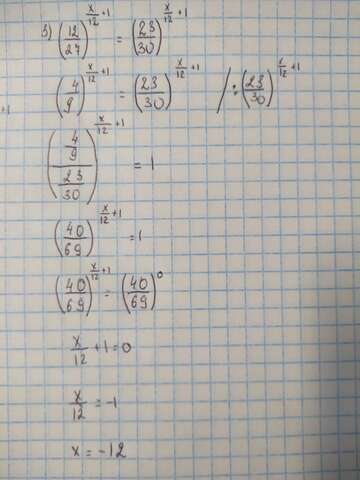 3) (12/27)^(x/12 +1) = (23/30)^(x/12 +1)
(4/9)^(x/12 +1) = (23/30)^(x/12 +1) / : (23/30)^(x/12 +1)
+1
((4/9)/(23/30))^(x/12 +1) = 1
(40/69)^(x/12 +1) = 1
(40/69)^(x/12 +1) = (40/69)^0
x/12 + 1 = 0
x/12 = -1
x = -12